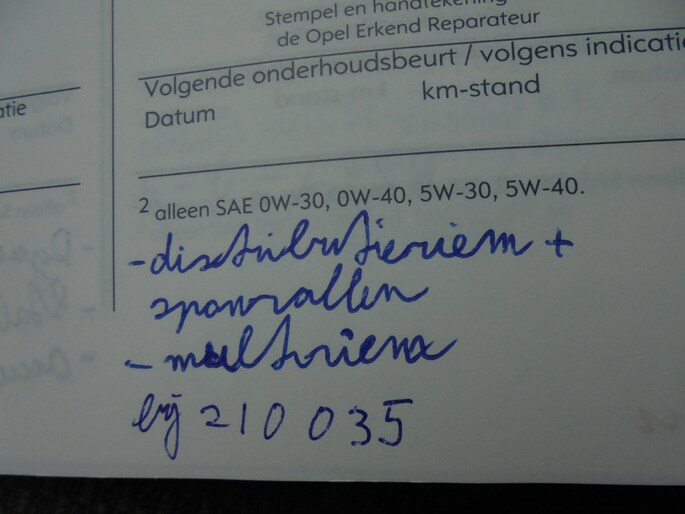 Stempel en handtekening
de Opel Erkend Reparateur
Volgende onderhoudsbeurt / volgens indicatie
Datum km-stand
atie
2 alleen SAE 0W-30, 0W-40, 5W-30, 5W-40.
- distributieriem +
spanrollen
- multiriem
bij 210 035